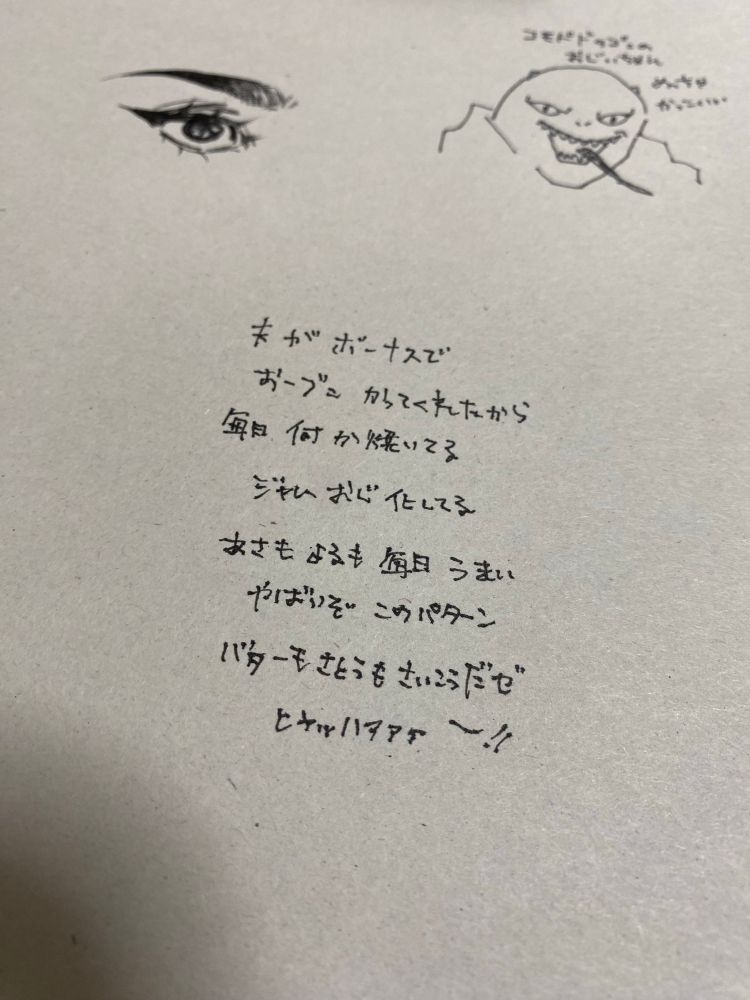 コモドドラゴンの
おじいちゃん
めっちゃ
かっこいい
夫がボーナスで
おーブン かってくれたから
毎日 何か焼いてる
ジャムおじ化してる
あさも よるも 毎日 うまい
やばいぞ このパターン
バターもさとうもさいこうだゼ
ヒャッハァァァ 〜!!